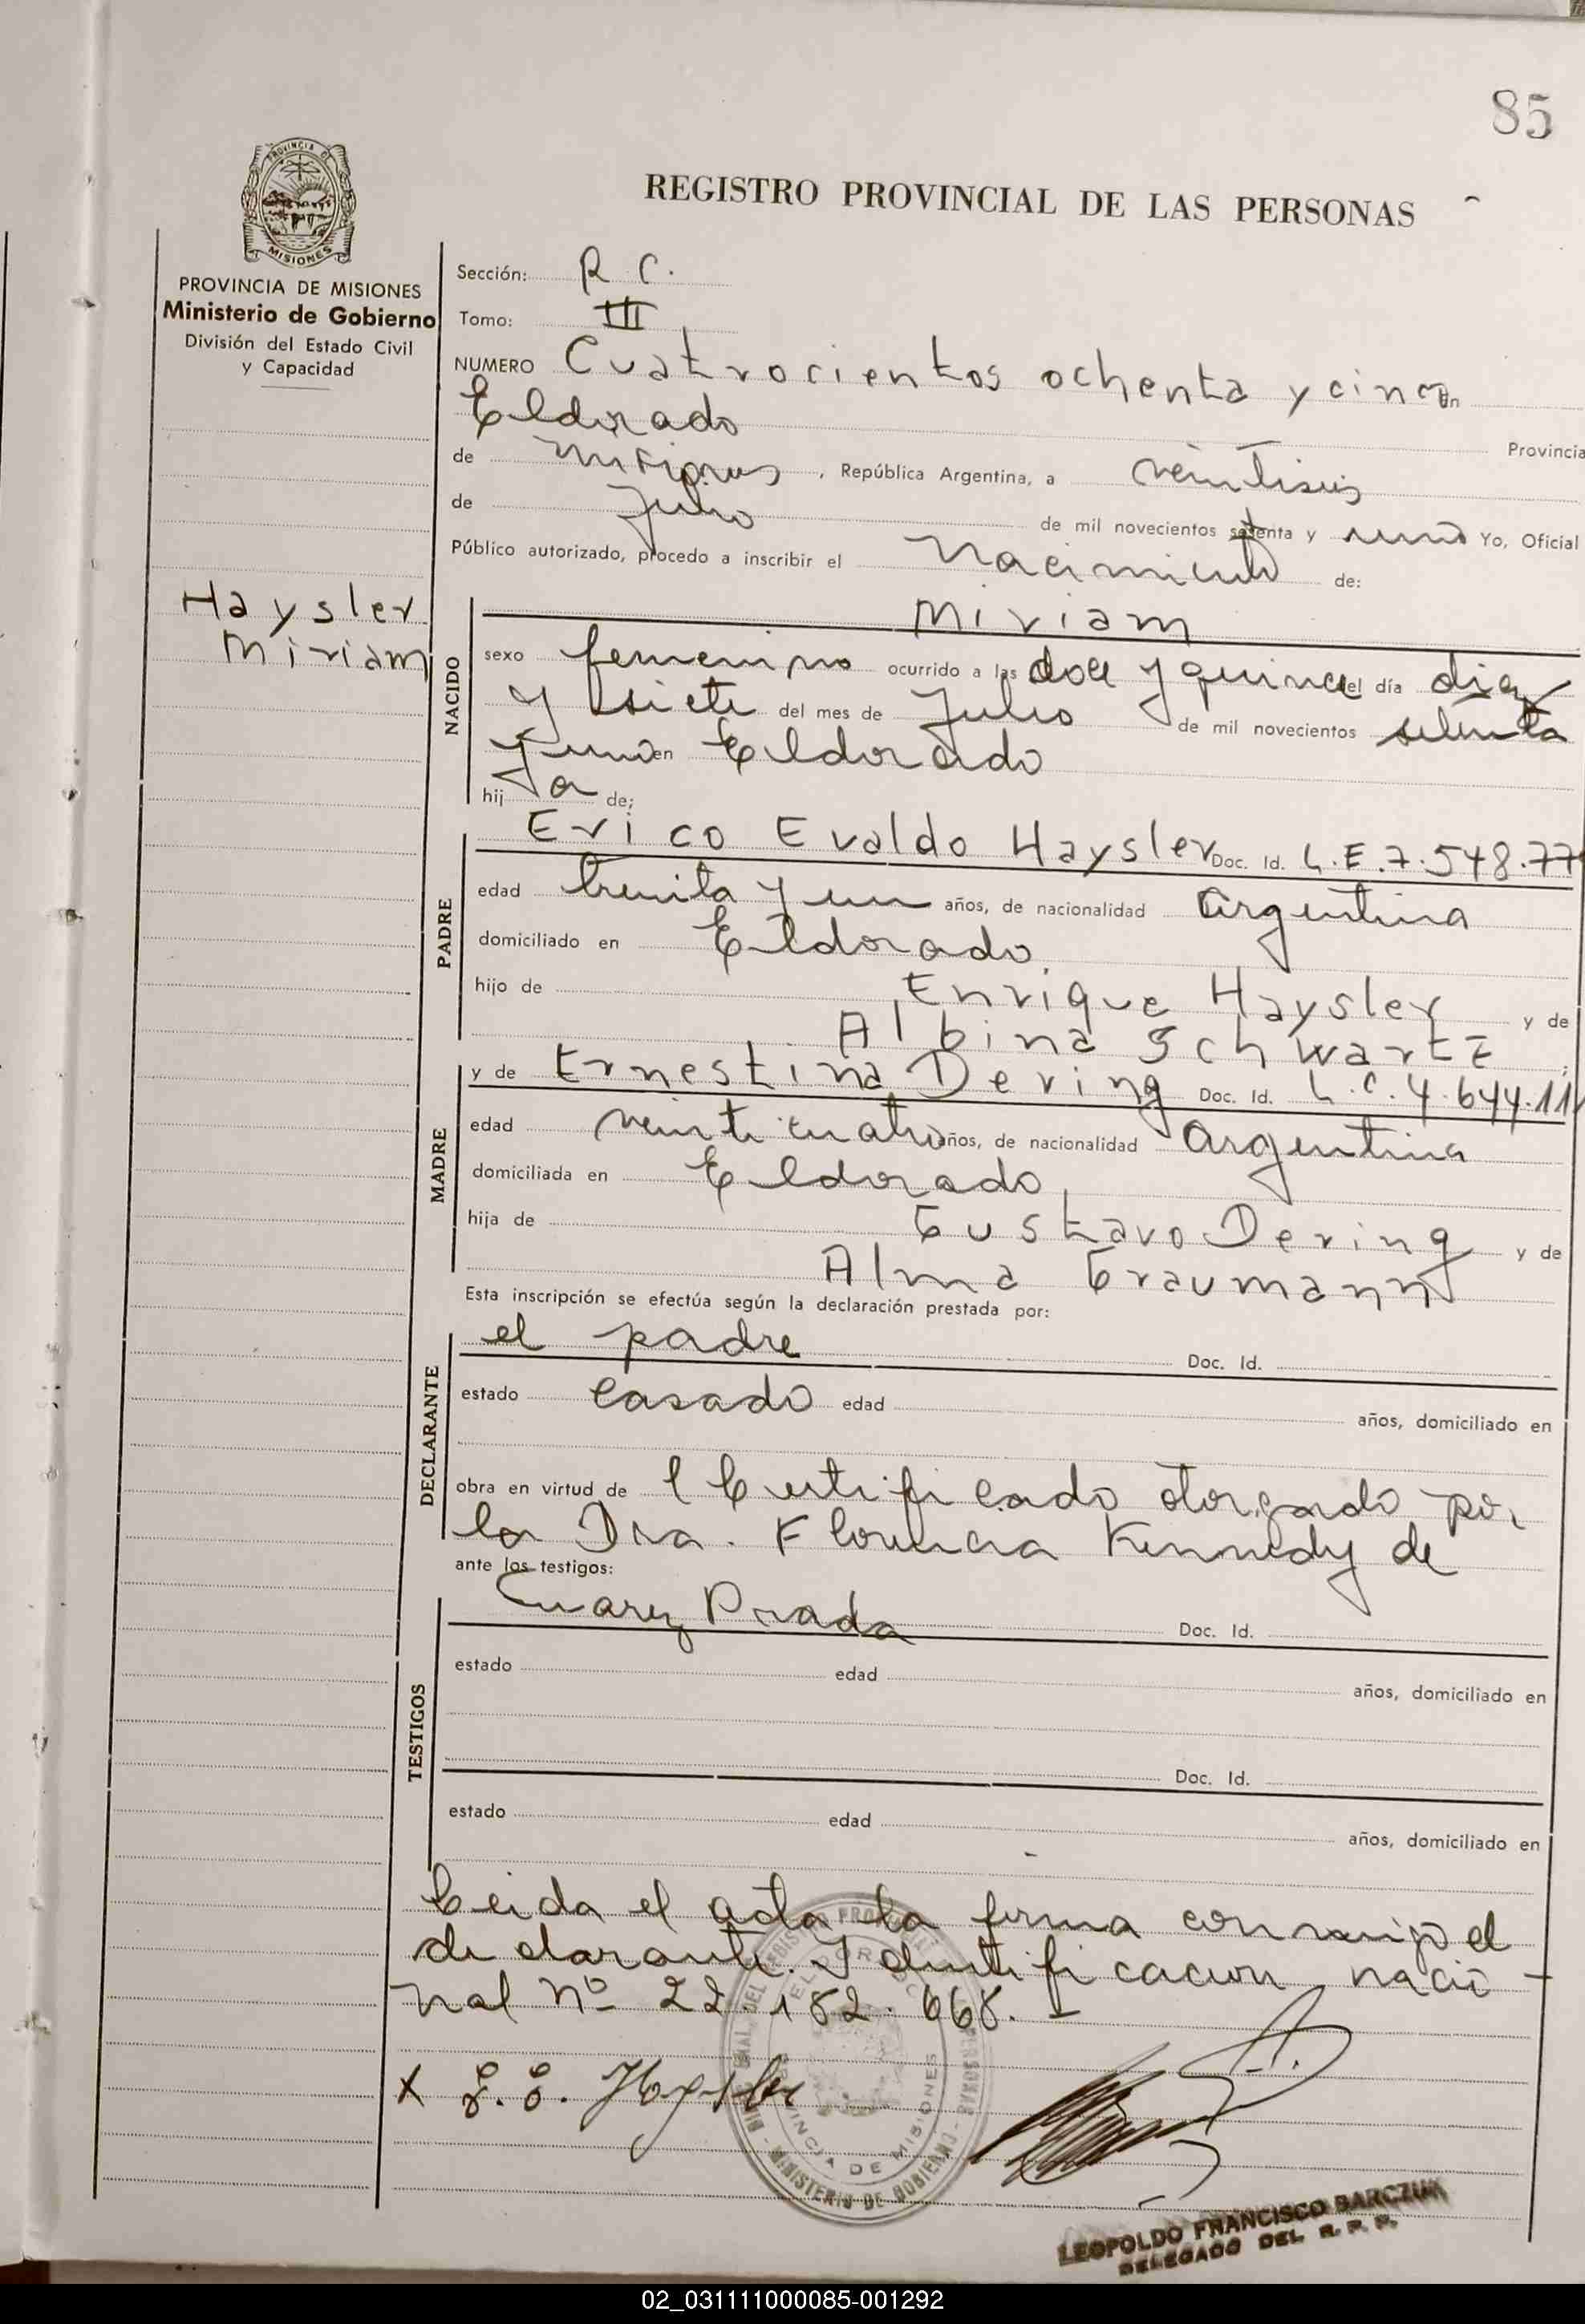 85
PROVINCIA DE
MISIONES
REGISTRO PROVINCIAL DE LAS PERSONAS
PROVINCIA DE MISIONES
Ministerio de Gobierno
División del Estado Civil
y Capacidad
Sección: R. C.
Tomo: III
NUMERO Cuatrocientos ochenta y cinco En
Eldorado Provincia
de Misiones, República Argentina, a veintiseis
de Julio de mil novecientos setenta y uno Yo, Oficial
Público autorizado, procedo a inscribir el Nacimiento de:
Haysler
Miriam
NACIDO
Miriam
sexo femenino ocurrido a las doce y quince del día diez
y siete del mes de Julio de mil novecientos setenta
y uno en Eldorado
hij a de;
PADRE
Erico Evaldo Haysler Doc. Id. L.E.7.548.77
edad treinta y un años, de nacionalidad Argentina
domiciliado en Eldorado,
hijo de Enrique Haysler y de
Albina Schwartz ;
MADRE
y de Ernestina Dering Doc. Id. L.C.4.644.11
edad veinticuatro años, de nacionalidad Argentina
domiciliada en Eldorado,
hija de Gustavo Dering y de
Alma Graumann
Esta inscripción se efectúa según la declaración prestada por:
DECLARANTE
el padre Doc. Id.
estado casado edad años, domiciliado en
obra en virtud de l Certificado otorgado por
la Dra. Florencia Kennedy de
ante los testigos:
Suarez Prada Doc. Id.
TESTIGOS
estado edad años, domiciliado en
Doc. Id.
estado edad años, domiciliado en
Leida el acta la firma conmigo el
declarante. Identificacion nacio-
nal Nº 22.182.668.
x E. E. Haysler
ELDORADO
PROVINCIA DE MISIONES
MINISTERIO DE GOBIERNO
LEOPOLDO FRANCISCO BARCZUK
DELEGADO DEL R. P. P.
02_031111000085-001292